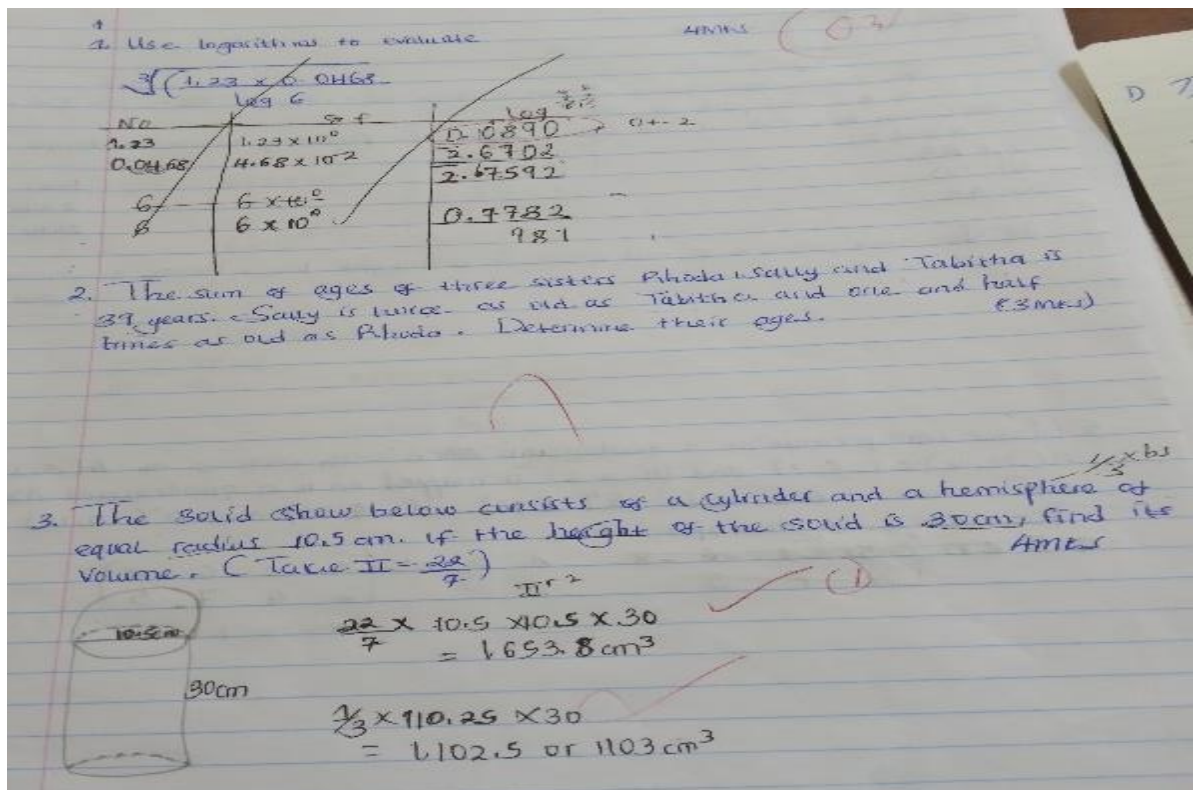 1 Use logarithms to evaluate 4MKS (03
∛(1.23 x 0.0468
log 6
No s.f log
1.23 1.23 x 10⁰ 0.0890 0 + - 2
0.0468 4.68 x 10⁻² 2̅.6702
2.67592
6 6 x 10⁰
6 6 x 10⁰ 0.7782
981
2. The sum of ages of three sisters Rhoda, Sally and Tabitha is
39 years. Sally is twice as old as Tabitha and one and half
times as old as Rhoda. Determine their ages. (3mks)
1/3 x bs
3. The solid show below consists of a cylinder and a hemisphere of
equal radius 10.5 cm. If the height of the solid is 30cm, find its
volume. (Take II = 22/7) 4mks
IIr² 1
10.5cm 22/7 x 10.5 x 10.5 x 30
= 1653.8 cm³
30cm
1/3 x 110.25 x 30
= 1,102.5 or 1103 cm³